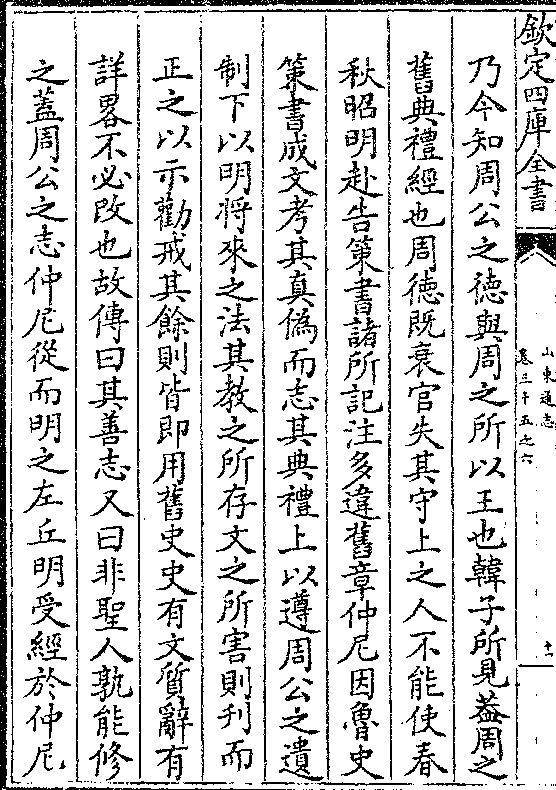 欽定四庫全書
山東通志
卷三十五之六
乃今知周公之德與周之所以王也韓子所見葢周之
舊典禮經也周德既衰官失其守上之人不能使春
秋昭明赴告策書諸所記注多違舊章仲尼因魯史
策書成文考其真偽而志其典禮上以遵周公之遺
制下以明将來之法其教之所存文之所害則刋而
正之以示勸戒其餘則皆即用舊史史有文質辭有
詳畧不必改也故傳曰其善志又曰非聖人孰能修
之蓋周公之志仲尼從而明之左丘明受經於仲尼